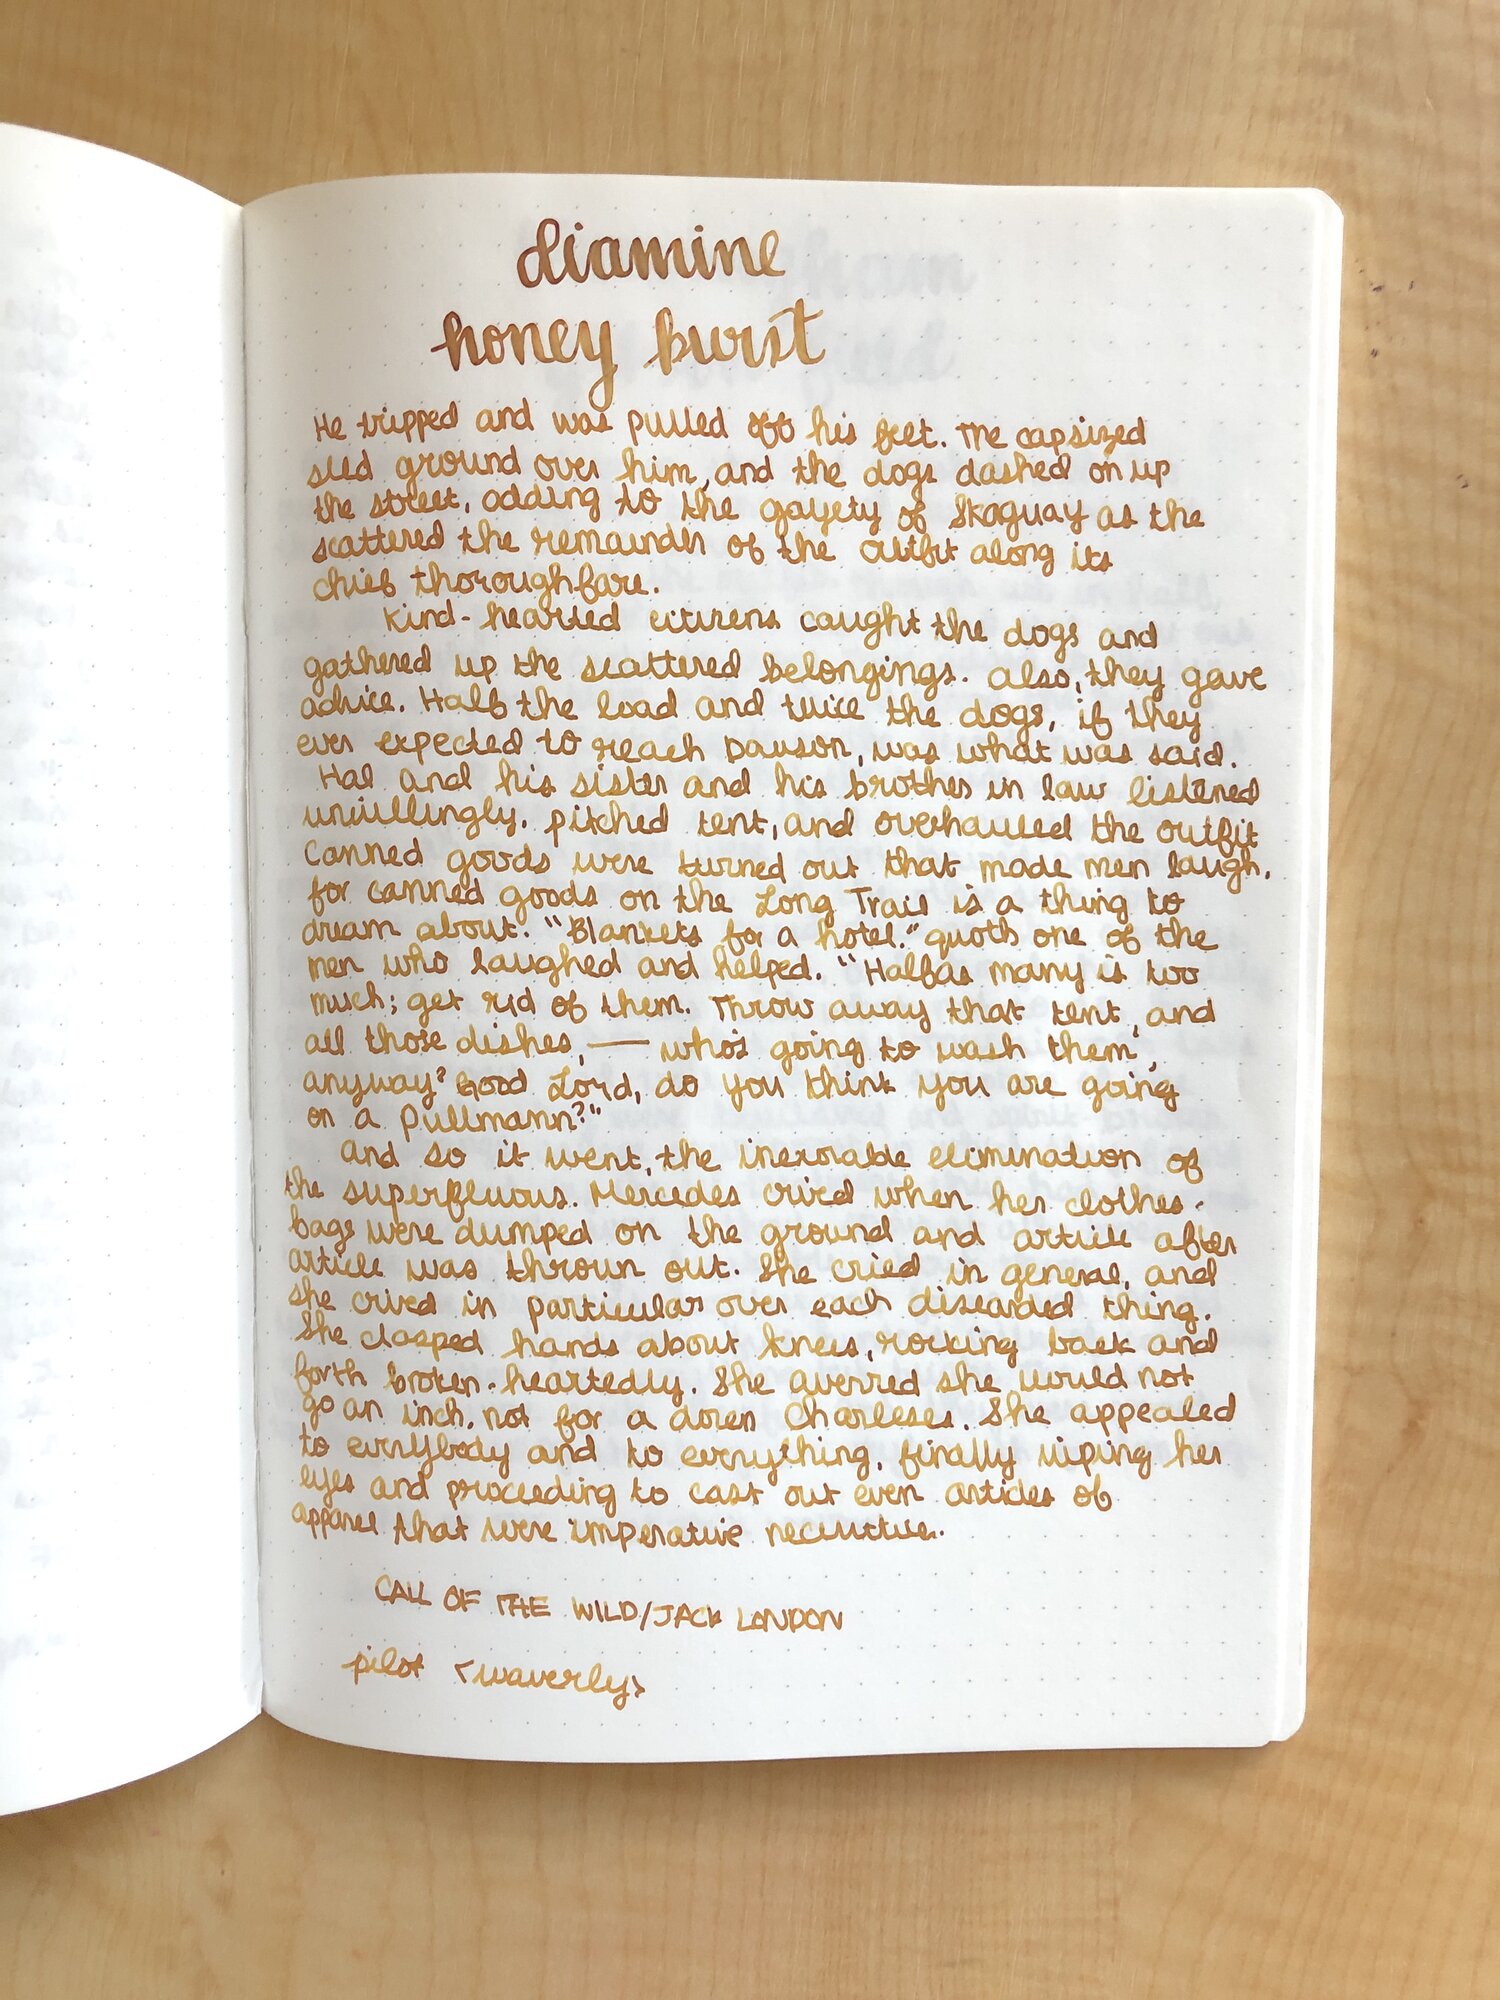 diamine
honey burst
He tripped and was pulled off his feet. The capsized
sled ground over him, and the dogs dashed on up
the street, adding to the gayety of Skaguay as the
scattered the remainder of the outfit along its
chief thoroughfare.
Kind-hearted citizens caught the dogs and
gathered up the scattered belongings. Also, they gave
advice. Half the load and twice the dogs, if they
ever expected to reach Dawson, was what was said.
Hal and his sister and his brother in law listened
unwillingly, pitched tent, and overhauled the outfit
Canned goods were turned out that made men laugh,
for canned goods on the Long Trail is a thing to
dream about. "Blankets for a hotel." quoth one of the
men who laughed and helped. "Half as many is too
much; get rid of them. Throw away that tent, and
all those dishes, — who's going to wash them,
anyway? Good Lord, do you think you are going
on a Pullmann?"
And so it went, the inexorable elimination of
the superfluous. Mercedes cried when her clothes-
bags were dumped on the ground and article after
article was thrown out. She cried in general, and
she cried in particular over each discarded thing.
She clasped hands about knees, rocking back and
forth broken-heartedly. She averred she would not
go an inch, not for a dozen Charleses. She appealed
to everybody and to everything, finally wiping her
eyes and proceeding to cast out even articles of
apparel that were imperative
CALL OF THE WILD/JACK LONDON
pilot <waverly>